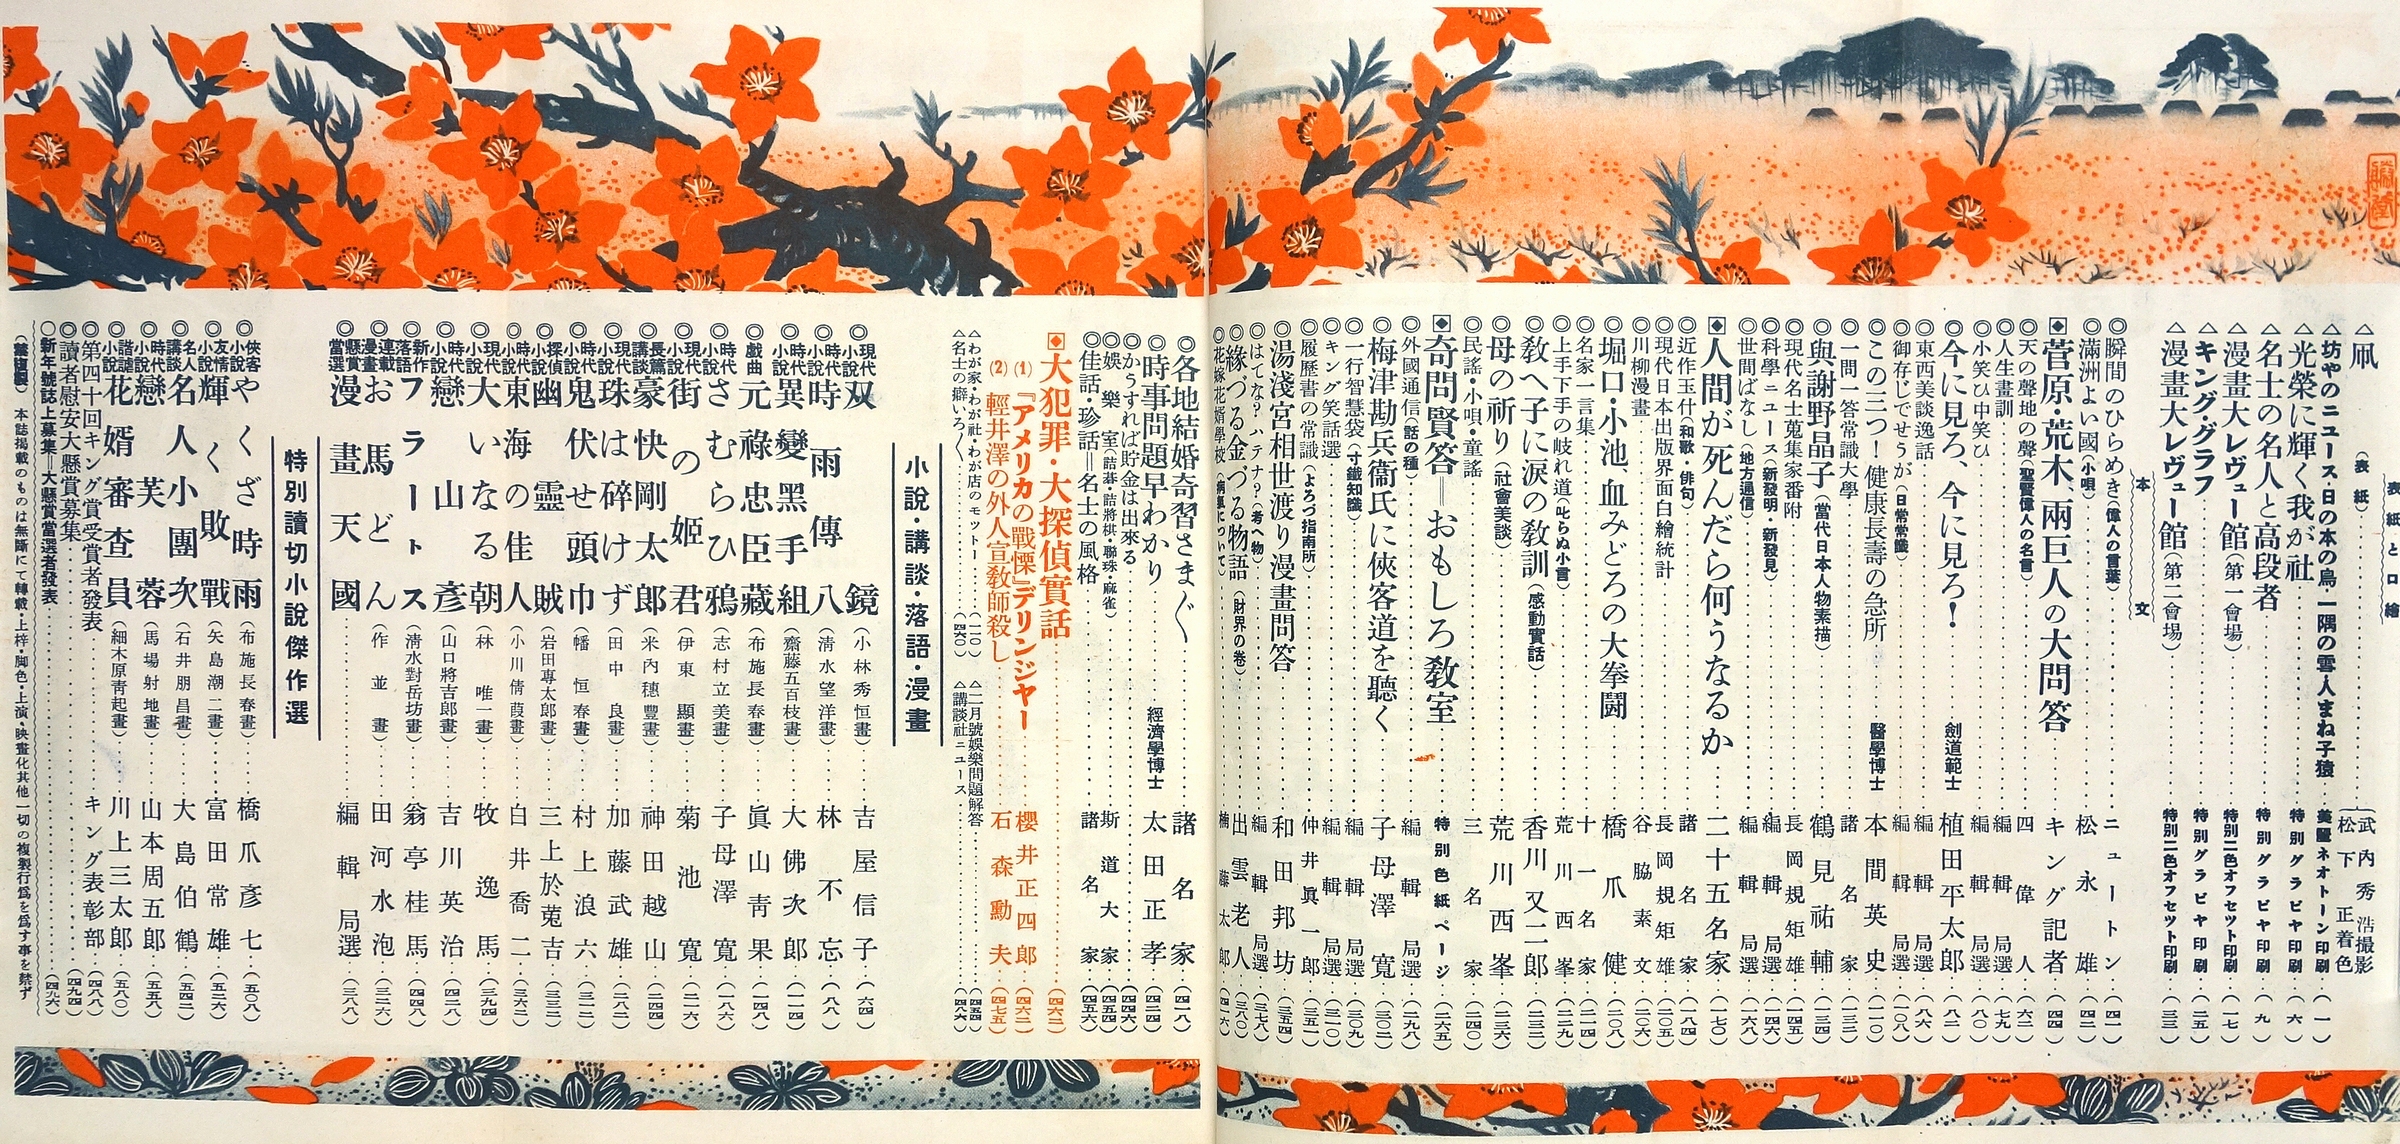 表紙と口繪
△凧（表紙）……（武内秀浩撮影 松下正着色
△坊やのニュース・日の本の鳥・一隅の雪・人まね子猿…美麗ネオトーン印刷…（一）
△光榮に輝く我が社……特別グラビヤ印刷…（六）
△名士の名人と高段者……特別グラビヤ印刷…（九）
△漫畫大レヴュー館（第一會場）……特別二色オフセット印刷…（一七）
△キング・グラフ……特別グラビヤ印刷…（二五）
△漫畫大レヴュー館（第二會場）……特別二色オフセット印刷…（三三）
本文
◎瞬間のひらめき（偉人の言葉）……ニュートン…（四一）
◎滿洲よい國（小唄）……松永雄…（四二）
菅原・荒木、兩巨人の大問答……キング記者…（四四）
◎天の聲地の聲（聖賢偉人の名言）……四偉人…（六二）
◎人生畫訓……編輯局選…（七九）
◎小笑ひ中笑ひ……編輯局選…（八〇）
◎今に見ろ、今に見ろ！ 劍道範士 植田平太郎…（八二）
◎東西美談逸話……編輯局選…（八六）
◎御存じでせうが（日常常識）……編輯局選…（一〇八）
◎この三つ！健康長壽の急所 醫學博士 本間英史…（一一〇）
◎一問一答常識大學……諸名家…（一三二）
◎與謝野晶子（當代日本人物素描）……鶴見祐輔…（一三四）
◎現代名士蒐集家番附……長岡規矩雄…（一四五）
◎科學ニュース（新發明・新發見）……編輯局選…（一四六）
◎世間ばなし（地方通信）……編輯局選…（一六八）
人間が死んだら何うなるか……二十五名家…（一七〇）
◎近作玉什（和歌・俳句）……諸名家…（一八四）
◎現代日本出版界面白繪統計……長岡規矩雄…（二〇五）
◎川柳漫畫……谷脇素文…（二〇六）
◎堀口・小池、血みどろの大拳鬪……橋爪健…（二〇八）
◎名家一言集……十一名家…（二一四）
◎上手下手の岐れ道（叱らぬ小言）……荒川西峯…（二二九）
◎敎へ子に涙の敎訓（感動實話）……香川又二郎…（二三二）
◎母の祈り（社會美談）……荒川西峯…（二三六）
◎民謠・小唄・童謠……三名家…（二四〇）
奇問賢答＝おもしろ敎室……特別色紙ページ…（二六五）
◎外國通信（話の種）……編輯局選…（二九八）
◎梅津勘兵衞氏に俠客道を聽く……子母澤寛…（三〇二）
◎一行智慧袋（寸鐵知識）……編輯局選…（三〇九）
◎キング笑話選……編輯局選…（三一〇）
◎履歷書の常識（よろづ指南所）……仲井眞一郎…（三五一）
◎湯淺宮相世渡り漫畫問答……和田邦坊…（三五四）
◎はてな？ハテナ？（考へ物）……編輯局選…（三七六）
◎緣づる金づる物語（財界の卷）……出雲老人…（三八〇）
◎花嫁花婿學校（病氣について）……楠藤太郎…（四一六）
◎各地結婚奇習さまぐ……諸名家…（四一八）
◎時事問題早わかり 經濟學博士 太田正孝…（四二四）
◎かうすれば貯金は出來る……（四四六）
◎娛樂室（詰碁・詰將棋・聯珠・麻雀）……斯道大家…（四五四）
◎佳話・珍話＝名士の風格……諸名家…（四五六）
大犯罪・大探偵實話……（四六二）
（1）『アメリカの戰慄』デリンジャー……櫻井正四郎…（四六二）
（2）輕井澤の外人宣敎師殺し……石森勳夫…（四七五）
△わが家・わが社・わが店のモットー……（一一〇） △二月號娛樂問題解答……（四五四）
△名士の癖いろ〱……（四六〇） △講談社ニュース……（四八六）
小說・講談・落語・漫畫
◎現代小說 双鏡（小林秀恒畫）……吉屋信子…（六四）
◎時代小說 時雨傳八（淸水望洋畫）……林不忘…（八八）
◎時代小說 異變黑手組（齋藤五百枝畫）……大佛次郎…（一一四）
◎戲曲 元祿忠臣藏（布施長春畫）……眞山靑果…（一四八）
◎時代小說 さむらひ鴉（志村立美畫）……子母澤寛…（一八六）
◎現代小說 街の姬君（伊東顯畫）……菊池寛…（二一六）
◎長篇講談 豪快剛太郎（米內穗豐畫）……神田越山…（二四四）
◎現代小說 珠は碎けず（田中良畫）……加藤武雄…（二八二）
◎時代小說 鬼伏せ頭巾（幡恒春畫）……村上浪六…（三一二）
◎探偵小說 幽靈賊（岩田專太郎畫）……三上於菟吉…（三三二）
◎時代小說 東海の佳人（小川倩葭畫）……白井喬二…（三六二）
◎現代小說 大いなる朝（林唯一畫）……牧逸馬…（三九四）
◎時代小說 戀山彥（山口將吉郎畫）……吉川英治…（四二八）
◎新作落語 フラート・ス（淸水對岳坊畫）……翁亭桂馬…（四四八）
◎連載漫畫 お馬どん（作並畫）……田河水泡…（三二六）
◎懸賞當選 漫畫天國……編輯局選…（三八八）
特別讀切小說傑作選
◎俠客小說 やくざ時雨（布施長春畫）……橋爪彥七…（五〇八）
◎友情小說 輝く敗戰（矢島潮二畫）……富田常雄…（五二六）
◎名人講談 名人小團次（石井朋昌畫）……大島伯鶴…（五四二）
◎時代小說 戀芙蓉（馬場射地畫）……山本周五郎…（五五八）
◎諧謔小說 花婿審查員（細木原靑起畫）……川上三太郎…（五八〇）
◎第四十回キング賞受賞者發表……キング表彰部…（四八八）
◎讀者慰安大懸賞募集……（四九四）
◎新年號誌上募集＝大懸賞當選者發表……（四九六）
（禁複製） 本誌揭載のものは無斷にて轉載・上梓・脚色・上演・映畫化其他一切の複製行爲を爲す事を禁ず